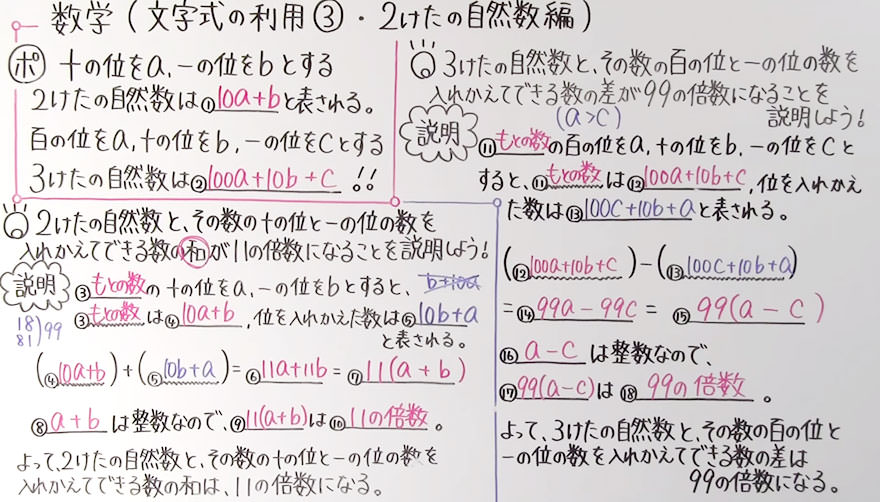 数学(文字式の利用③・2けたの自然数編)
ポ 十の位をa,一の位をbとする
2けたの自然数は①10a+bと表される。
百の位をa,十の位をb,一の位をcとする
3けたの自然数は②100a+10b+c!!
2けたの自然数と、その数の十の位と一の位の数を
入れかえてできる数の和が11の倍数になることを説明しよう!
説明
③もとの数の十の位をa,一の位をbとすると、
b+10a
③もとの数は④10a+b,位を入れかえた数は⑤10b+a
と表される。
18
81)99
(④10a+b)+(⑤10b+a)=⑥11a+11b=⑦11(a+b)
⑧a+bは整数なので、⑨11(a+b)は⑩11の倍数。
よって、2けたの自然数と、その数の十の位と一の位の数を
入れかえてできる数の和は、11の倍数になる。
3けたの自然数と、その数の百の位と一の位の数を
入れかえてできる数の差が99の倍数になることを
(a>c) 説明しよう!
説明
⑪もとの数の百の位をa,十の位をb,一の位をcと
すると、⑪もとの数は⑫100a+10b+c,位を入れかえ
た数は⑬100c+10b+aと表される。
(⑫100a+10b+c)-(⑬100c+10b+a)
=⑭99a-99c=⑮99(a-c)
⑯a-cは整数なので、
⑰99(a-c)は⑱99の倍数。
よって、3けたの自然数と、その数の百の位と
一の位の数を入れかえてできる数の差は
99の倍数になる。